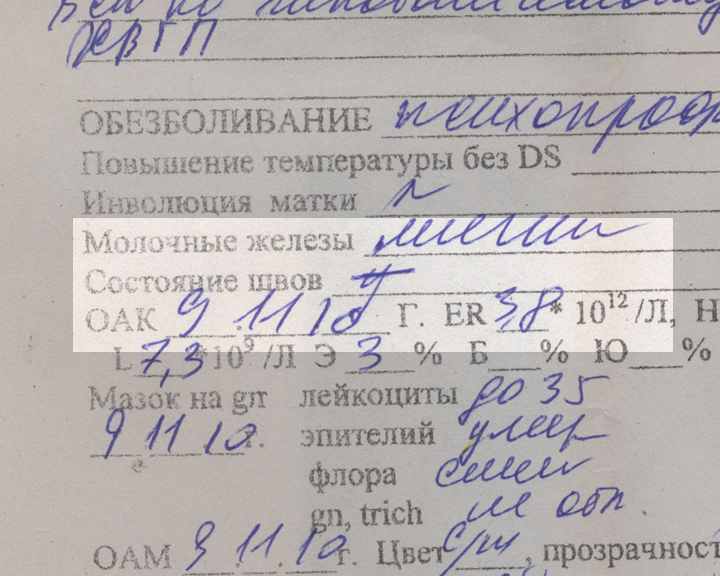 ХВГП
ОБЕЗБОЛИВАНИЕ психопроф
Повышение температуры без DS
Инволюция матки N
Молочные железы мягкие
Состояние швов
ОАК 9.11.10 Г. ER 3,8* 10¹² /Л, Н
L 7,3*10⁹ /Л Э 3% Б % Ю %
Мазок на gn лейкоциты до 35
9 11 10г. эпителий умер
флора смеш
gn, trich не обн.
ОАМ 9.11.10г. Цвет с/ж, прозрачност